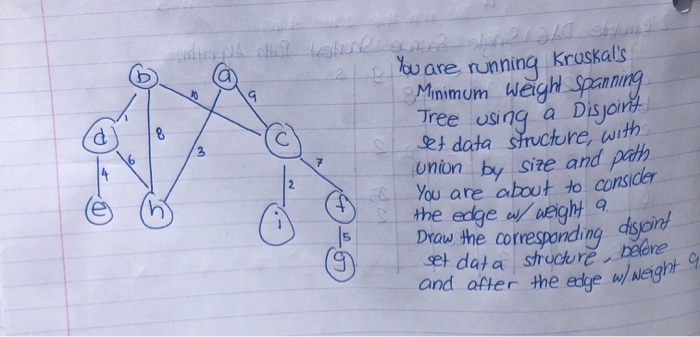 You are running Kruskal's
Minimum Weight Spanning
Tree using a Disjoint
set data structure, with
union by size and path
You are about to consider
the edge w/ weight 9.
Draw the corresponding disjoint
set data structure, before
and after the edge w/weight 9
b
a
10
9
1
d
8
c
6
3
7
4
2
e
h
i
f
5
g